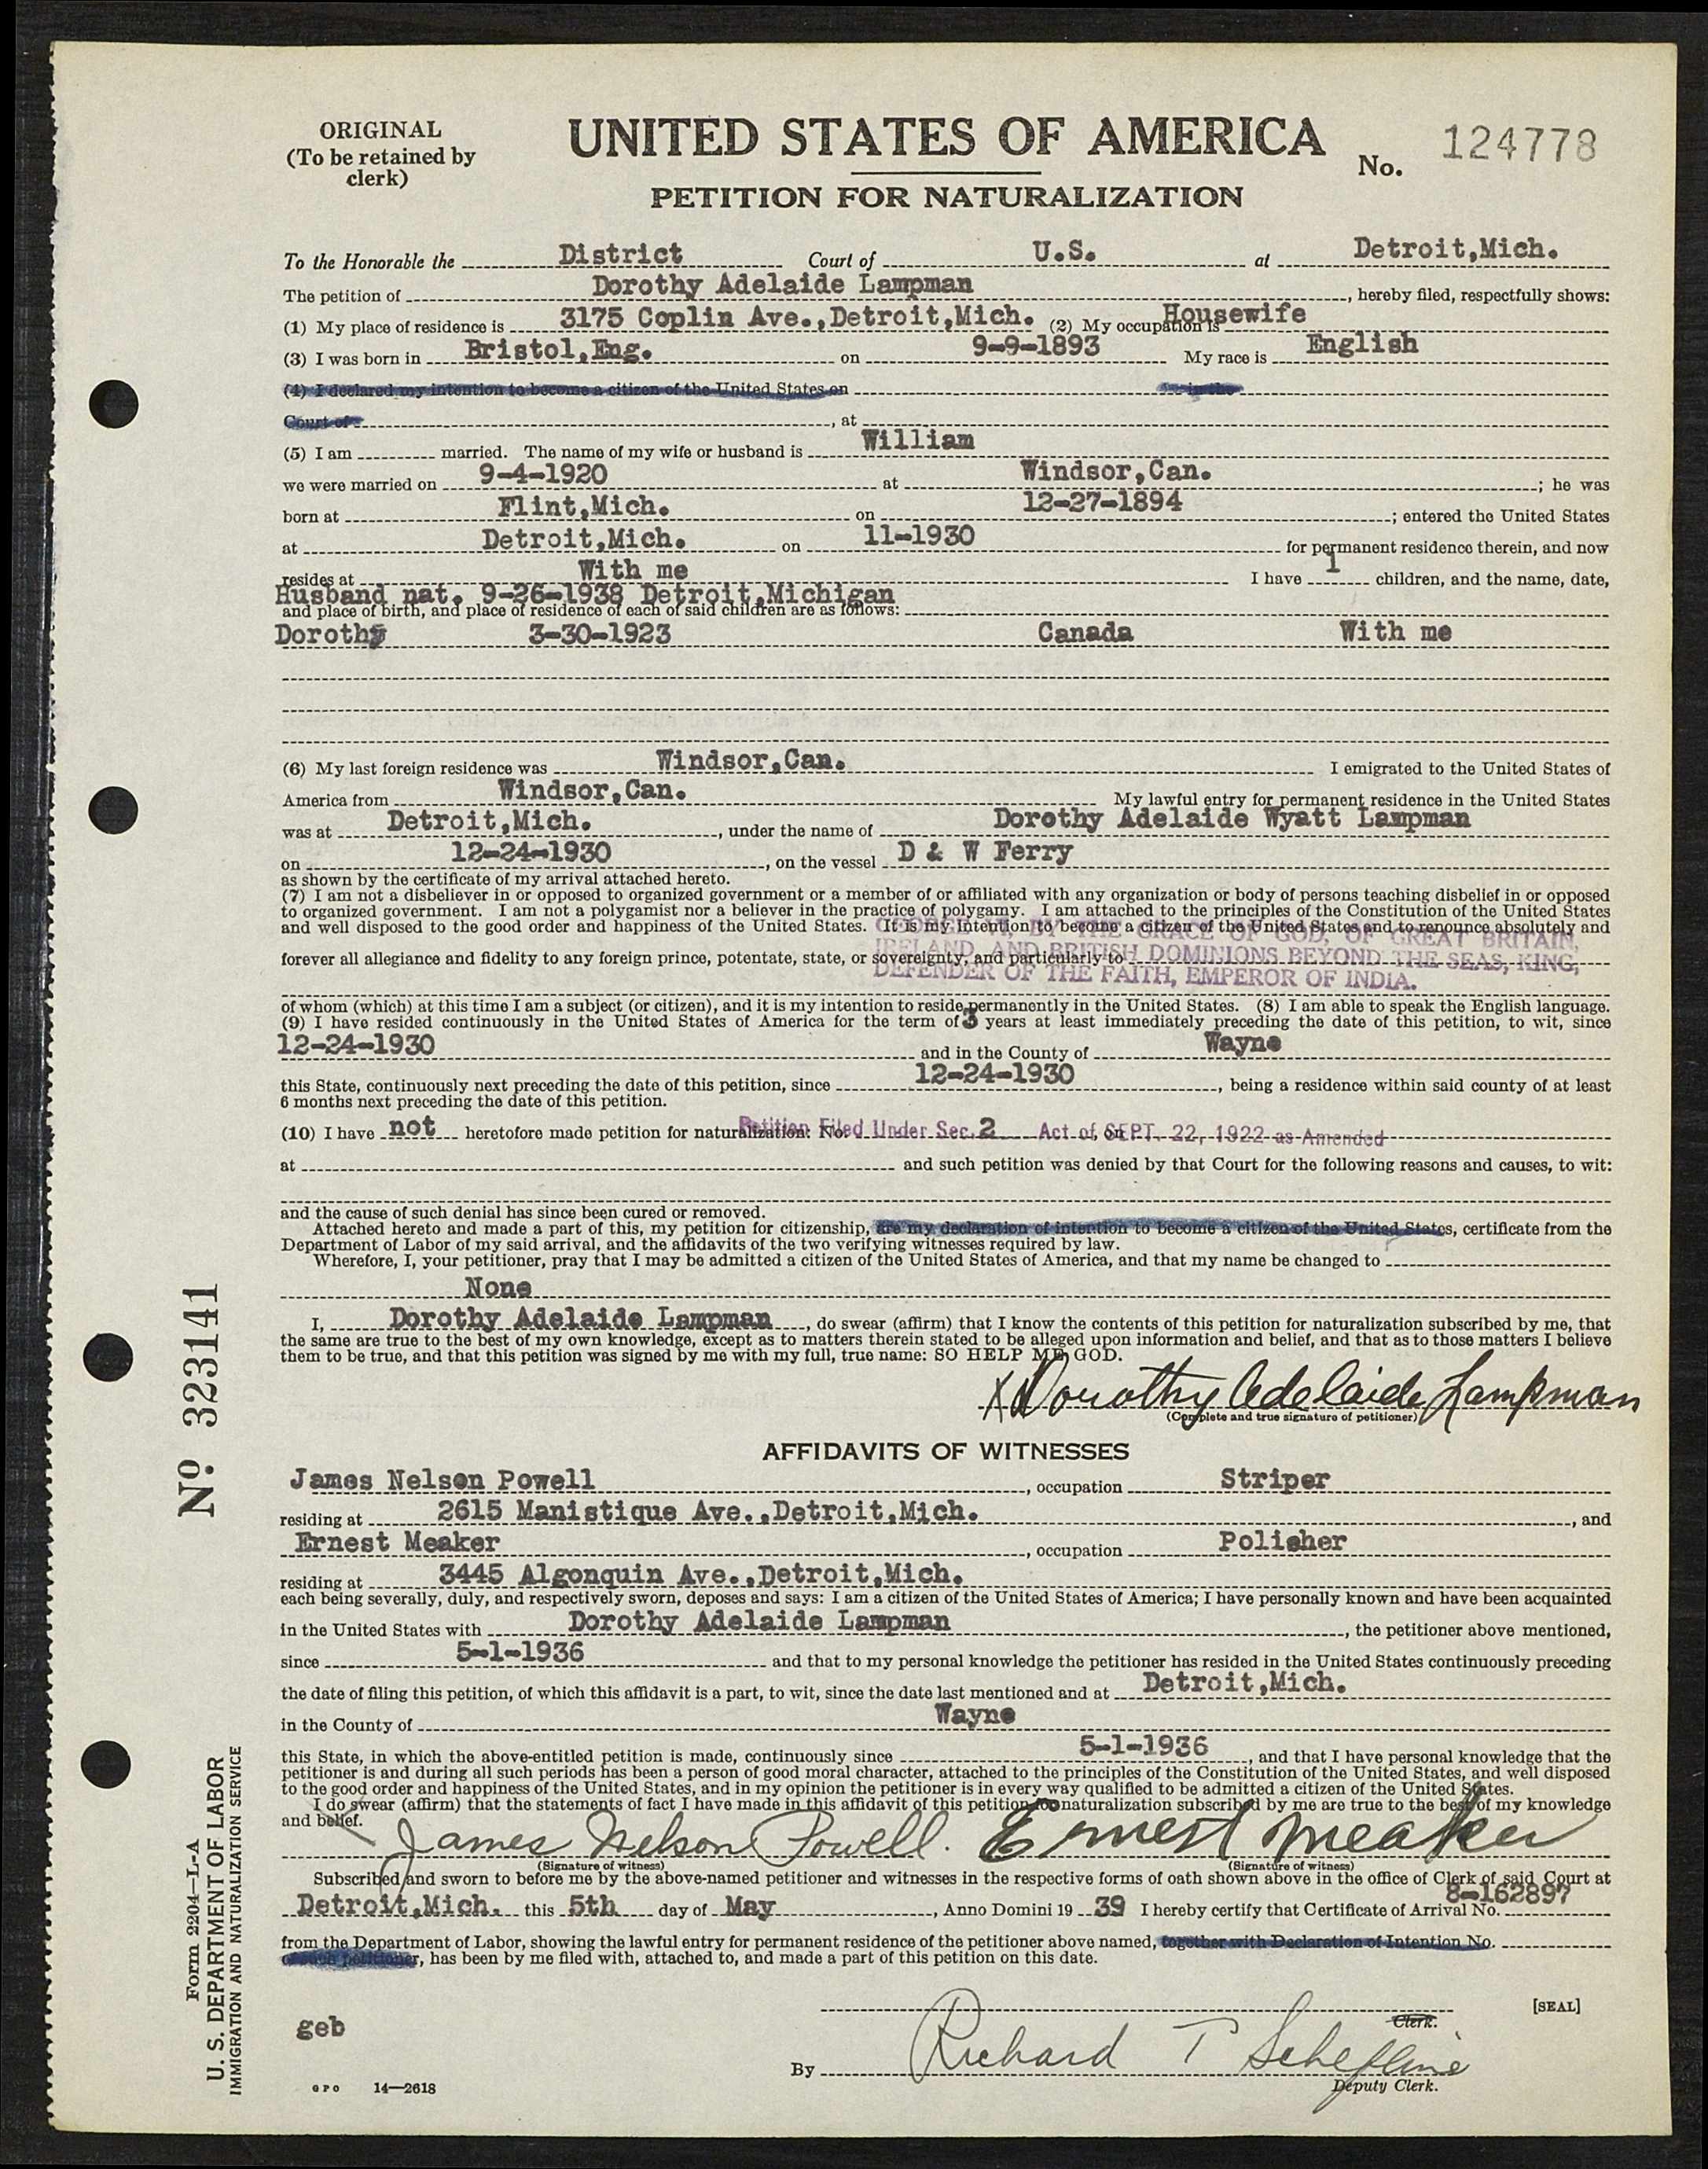 ORIGINAL
(To be retained by
clerk)
UNITED STATES OF AMERICA
No. 124778
PETITION FOR NATURALIZATION
To the Honorable the District Court of U.S. at Detroit,Mich.
The petition of Dorothy Adelaide Lampman, hereby filed, respectfully shows:
(1) My place of residence is 3175 Coplin Ave.,Detroit,Mich. (2) My occupation is Housewife
(3) I was born in Bristol,Eng. on 9-9-1893 My race is English
(4) I declared my intention to become a citizen of the United States on in the
Court of , at
(5) I am married. The name of my wife or husband is William
we were married on 9-4-1920 at Windsor,Can. ; he was
born at Flint,Mich. on 12-27-1894 ; entered the United States
at Detroit,Mich. on 11-1930 for permanent residence therein, and now
resides at With me I have 1 children, and the name, date,
Husband nat. 9-26-1938 Detroit,Michigan
and place of birth, and place of residence of each of said children are as follows:
Dorothy 3-30-1923 Canada With me
(6) My last foreign residence was Windsor,Can. I emigrated to the United States of
America from Windsor,Can. My lawful entry for permanent residence in the United States
was at Detroit,Mich. , under the name of Dorothy Adelaide Wyatt Lampman
on 12-24-1930 , on the vessel D & W Ferry
as shown by the certificate of my arrival attached hereto.
(7) I am not a disbeliever in or opposed to organized government or a member of or affiliated with any organization or body of persons teaching disbelief in or opposed
to organized government. I am not a polygamist nor a believer in the practice of polygamy. I am attached to the principles of the Constitution of the United States
and well disposed to the good order and happiness of the United States. It is my intention to become a citizen of the United States and to renounce absolutely and
GEORGE VI, BY THE GRACE OF GOD, OF GREAT BRITAIN,
forever all allegiance and fidelity to any foreign prince, potentate, state, or sovereignty, and particularly to
IRELAND AND BRITISH DOMINIONS BEYOND THE SEAS, KING,
DEFENDER OF THE FAITH, EMPEROR OF INDIA.
of whom (which) at this time I am a subject (or citizen), and it is my intention to reside permanently in the United States. (8) I am able to speak the English language.
(9) I have resided continuously in the United States of America for the term of 3 years at least immediately preceding the date of this petition, to wit, since
12-24-1930 and in the County of Wayne
this State, continuously next preceding the date of this petition, since 12-24-1930 , being a residence within said county of at least
6 months next preceding the date of this petition.
(10) I have not heretofore made petition for naturalization: No. , on
Petition Filed Under Sec. 2 Act of SEPT. 22, 1922 as Amended
at and such petition was denied by that Court for the following reasons and causes, to wit:
and the cause of such denial has since been cured or removed.
Attached hereto and made a part of this, my petition for citizenship, are my declaration of intention to become a citizen of the United States, certificate from the
Department of Labor of my said arrival, and the affidavits of the two verifying witnesses required by law.
Wherefore, I, your petitioner, pray that I may be admitted a citizen of the United States of America, and that my name be changed to
None
I, Dorothy Adelaide Lampman , do swear (affirm) that I know the contents of this petition for naturalization subscribed by me, that
the same are true to the best of my own knowledge, except as to matters therein stated to be alleged upon information and belief, and that as to those matters I believe
them to be true, and that this petition was signed by me with my full, true name: SO HELP ME GOD.
X Dorothy Adelaide Lampman
(Complete and true signature of petitioner)
AFFIDAVITS OF WITNESSES
James Nelson Powell , occupation Striper
residing at 2615 Manistique Ave.,Detroit,Mich. , and
Ernest Meaker , occupation Polisher
residing at 3445 Algonquin Ave.,Detroit,Mich.
each being severally, duly, and respectively sworn, deposes and says: I am a citizen of the United States of America; I have personally known and have been acquainted
in the United States with Dorothy Adelaide Lampman , the petitioner above mentioned,
since 5-1-1936 and that to my personal knowledge the petitioner has resided in the United States continuously preceding
the date of filing this petition, of which this affidavit is a part, to wit, since the date last mentioned and at Detroit,Mich.
in the County of Wayne
this State, in which the above-entitled petition is made, continuously since 5-1-1936 , and that I have personal knowledge that the
petitioner is and during all such periods has been a person of good moral character, attached to the principles of the Constitution of the United States, and well disposed
to the good order and happiness of the United States, and in my opinion the petitioner is in every way qualified to be admitted a citizen of the United States.
I do swear (affirm) that the statements of fact I have made in this affidavit of this petition for naturalization subscribed by me are true to the best of my knowledge
and belief.
James Nelson Powell. Ernest Meaker
(Signature of witness) (Signature of witness)
Subscribed and sworn to before me by the above-named petitioner and witnesses in the respective forms of oath shown above in the office of Clerk of said Court at
Detroit,Mich. this 5th day of May , Anno Domini 19 39 I hereby certify that Certificate of Arrival No. 8-162897
from the Department of Labor, showing the lawful entry for permanent residence of the petitioner above named, together with Declaration of Intention No.
of such petitioner, has been by me filed with, attached to, and made a part of this petition on this date.
[SEAL]
Clerk.
geb
By Richard T
Deputy Clerk.
GPO 14—2618
No. 323141
Form 2204—L-A
U. S. DEPARTMENT OF LABOR
IMMIGRATION AND NATURALIZATION SERVICE